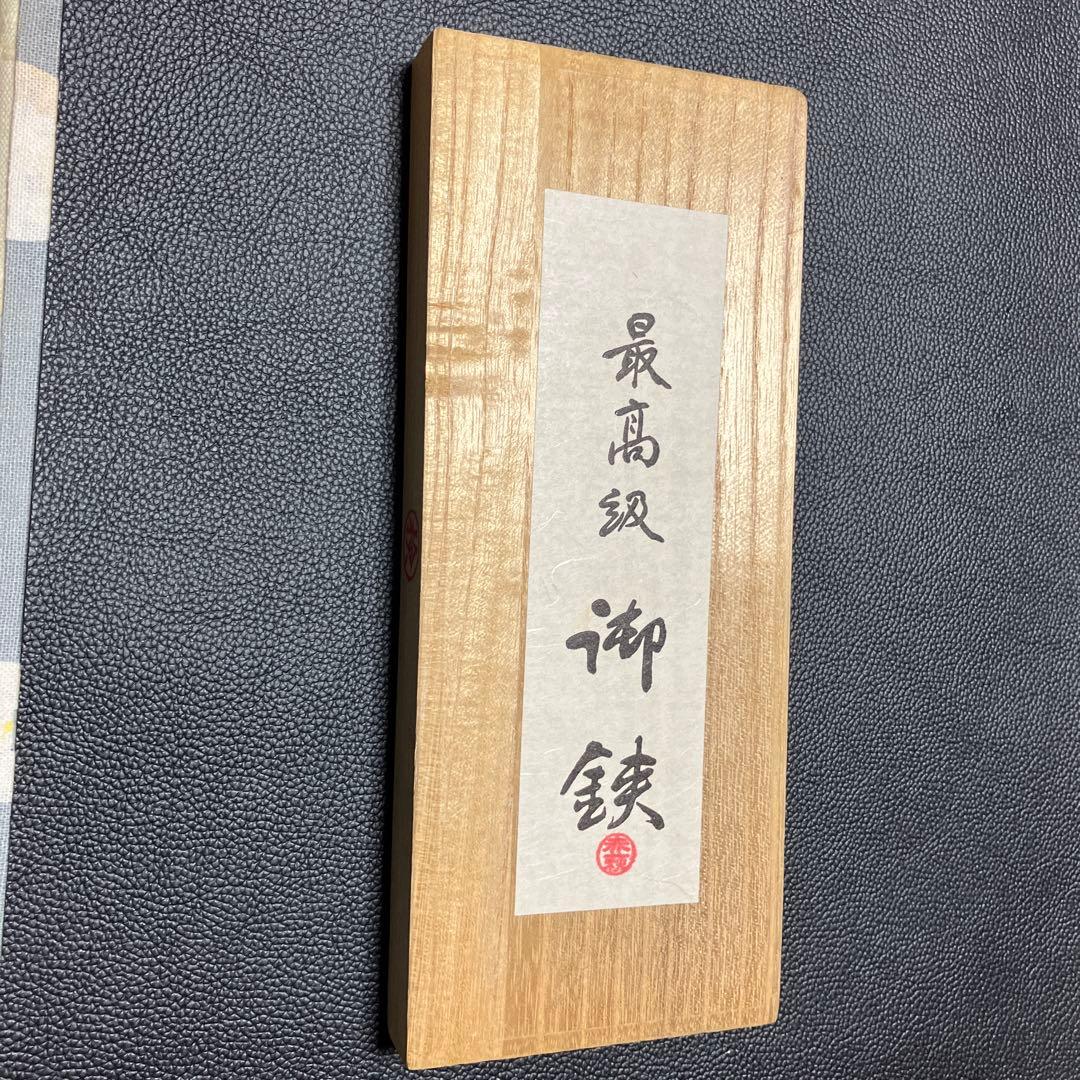 最高級 御鋏